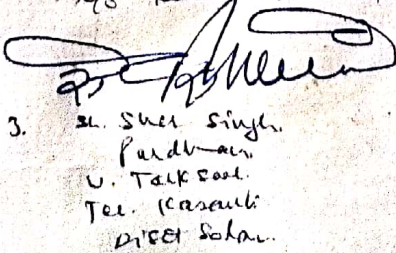 3. Sh. Sher Singh.
Pardhan
V. Taksaal
Teh. Kasauli
Distt Solan.